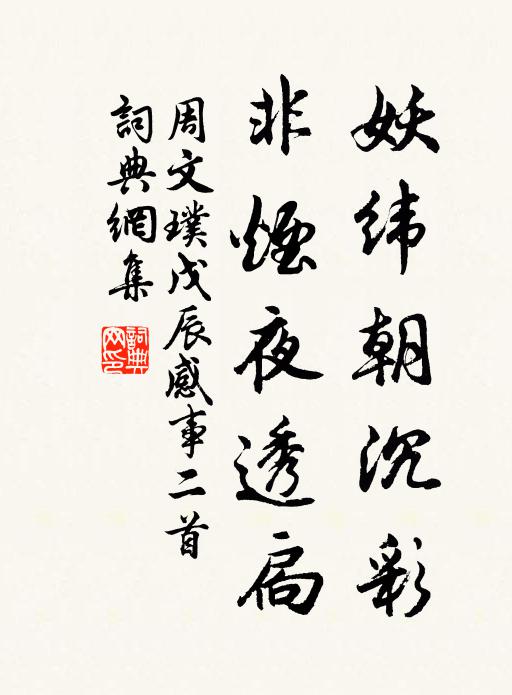 妖纬朝沉彩
非煙夜透扃
周文璞戊辰感事二首
詞典網集
詞典网印